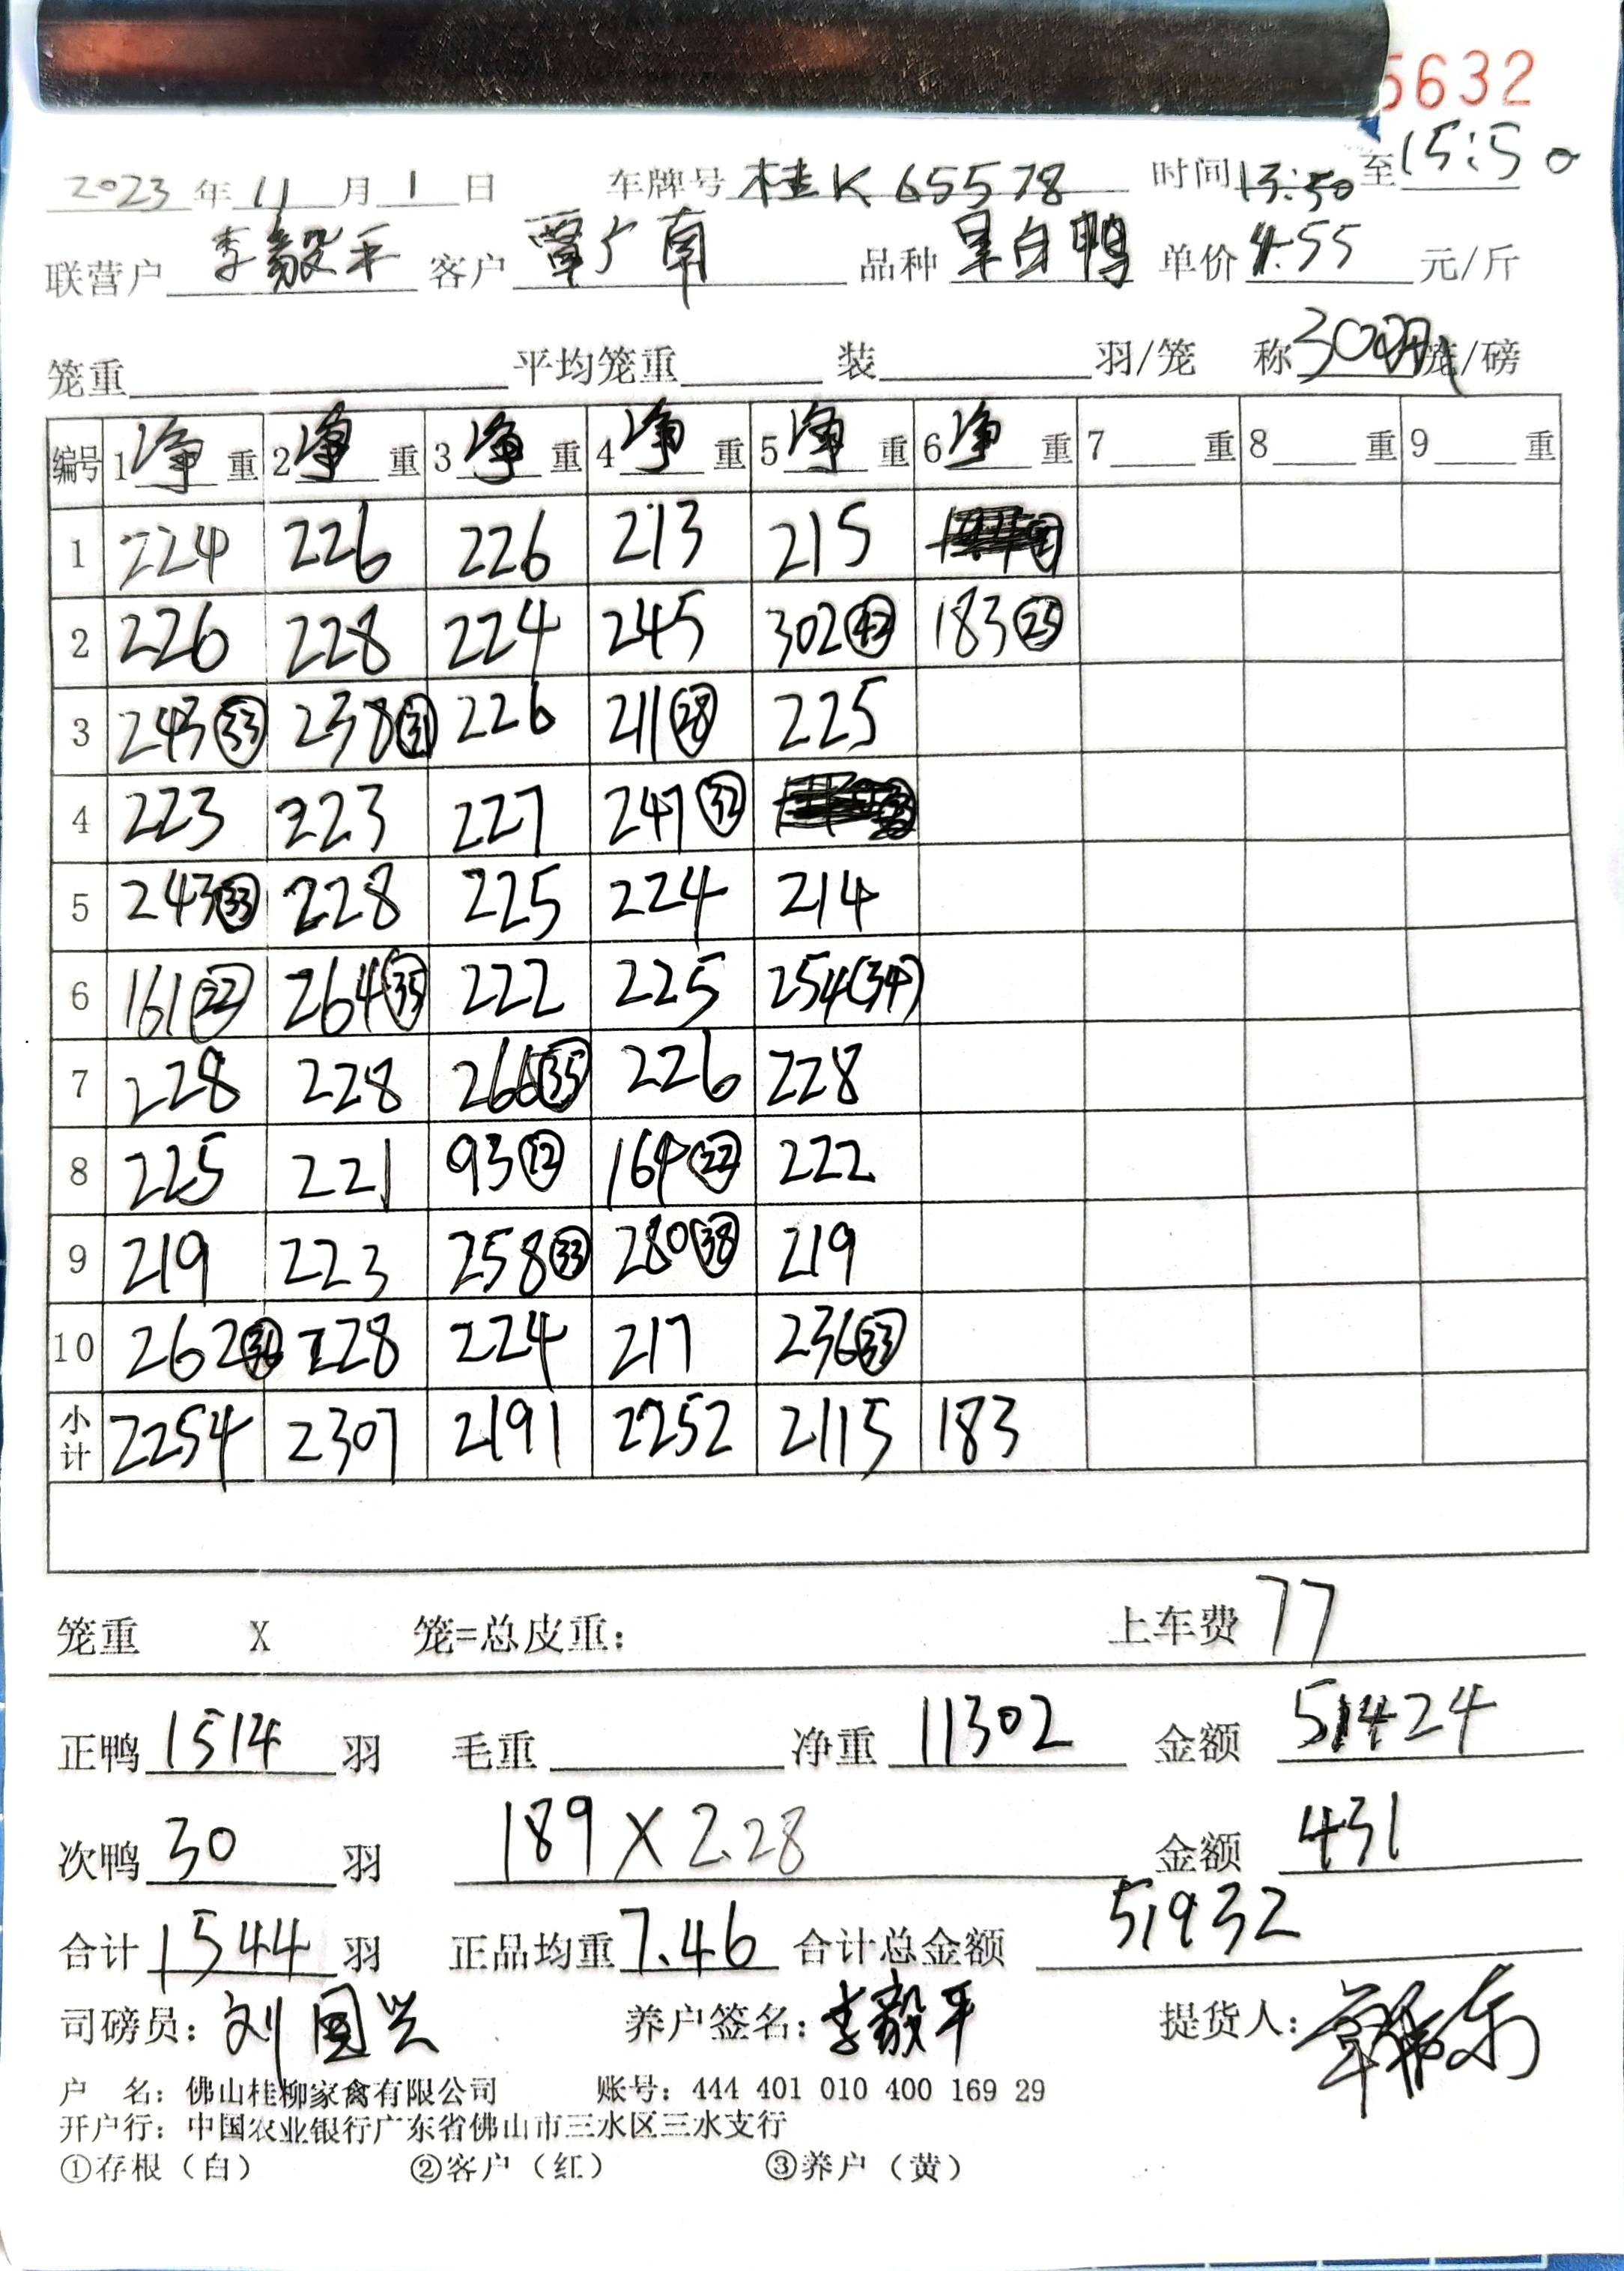 5632
2023年11月1日 车牌号桂K65578 时间13:50至15:50
联营户李毅平 客户覃广南 品种 白鸭 单价4.55 元/斤
笼重 平均笼重 装 羽/笼 称30羽笼/磅
编号 1净重 2净重 3净重 4净重 5净重 6净重 7重 8重 9重
1 224 226 226 213 215
2 226 228 224 245 302㊷ 183㉕
3 243㉝ 238㉛ 226 211㉘ 225
4 223 223 227 247㉜
5 243㉝ 228 225 224 214
6 161㉒ 264㉟ 222 225 254(34)
7 228 228 266㉟ 226 228
8 225 221 93⑫ 164㉒ 222
9 219 223 258㉝ 280㊳ 219
10 262 228 224 217 236㉝
小计 2254 2307 2191 2252 2115 183
笼重 X 笼=总皮重: 上车费77
正鸭1514羽 毛重 净重11302 金额51424
次鸭30羽 189×2.28 金额431
合计1544羽 正品均重7.46 合计总金额51932
司磅员:刘国兴 养户签名:李毅平 提货人:
户 名:佛山桂柳家禽有限公司 账号:444 401 010 400 169 29
开户行:中国农业银行广东省佛山市三水区三水支行
①存根(白) ②客户(红) ③养户(黄)